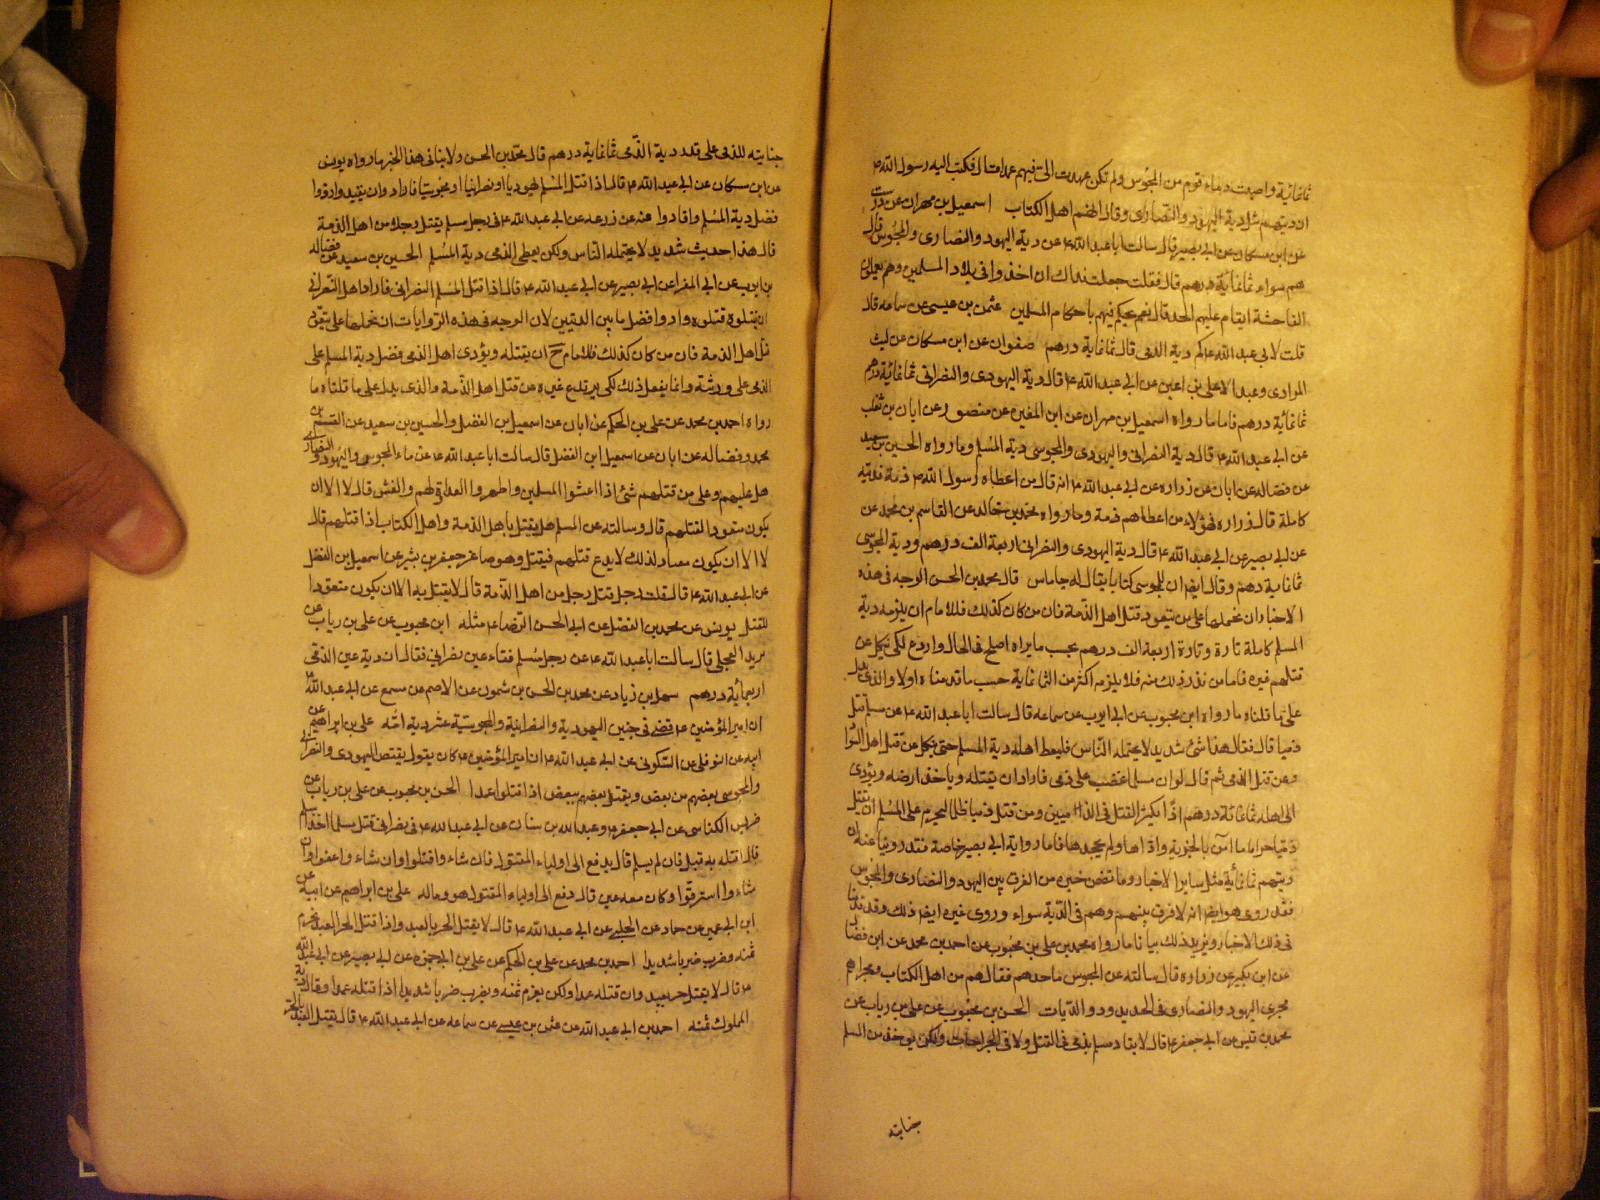 ثمانماية واصبت دماء قوم من المجوس ولم تكن عهدت الىّ فيهم عهدا قال فكتب اليه رسول الله ص
ان ديتهم مثل دية اليهود والنصارى وقال انهم اهل الكتاب اسمعيل بن مهران عن درست
عن ابن مسكان عن ابى بصير قال سالت ابا عبد الله ع عن دية اليهود والنصارى والمجوس قال
هم سواء ثمانماية درهم قال فقلت جعلت فداك ان اخذوا فى بلاد المسلمين وهم يعملون
الفاحشة ايقام عليهم الحد قال نعم يحكم فيهم باحكام المسلمين عثمن بن عيسى عن سماعه قال
قلت لابى عبد الله ع كم دية الذمى قال ثمانماية درهم صفوان عن ابن مسكان عن ليث
المرادى وعبد الاعلى بن اعين عن ابى عبد الله ع قال دية اليهودى والنصرانى ثمانماية درهم
ثمانماية درهم فاما ما رواه اسمعيل بن مهران عن ابن المغيره عن منصور عن ابان بن تغلب
عن ابى عبد الله ع قال دية النصرانى واليهودى والمجوسى دية المسلم وما رواه الحسين بن سعيد
عن فضاله عن ابان عن زراره عن ابى عبد الله ع انه قال من اعطاه رسول الله ص ذمة فديته
كاملة قال زراره فهؤلاء من اعطاهم ذمة وما رواه محمد بن خالد عن القاسم بن محمد عن
عن ابى بصير عن ابى عبد الله ع قال دية اليهودى والنصرانى اربعة الف درهم ودية المجوسى
ثمانماية درهم وقال ايضا ان للمجوسى كتابا يقال له جاماس قال محمد بن الحسن الوجه فى هذه
الاخبار ان نحملها على من يتعود قتل اهل الذمة فان من كان كذلك فللامام ان يلزمه دية
المسلم كاملة تارة وتارة اربعة الف درهم بحسب ما يراه اصلح فى الحال واردع لكى ينكل عن
قتلهم غيره فاما من ندر ذلك منه فلا يلزمه اكثر من الثمانماية حسب ما قدمناه اولا والذى يدل
على ما قلناه ما رواه ابن محبوب عن ابى ايوب عن سماعه قال سالت ابا عبد الله ع عن مسلم قتل
ذميا قال فقال هذا شئ شديد لا يحتمله الناس فليعط اهله دية المسلم حتى ينكل عن قتل اهل السواد
وعن قتل الذمى ثم قال لو ان مسلما غضب على ذمى فاراد ان يقتله وياخذ ارضه ويؤدى
الى اهله ثمانماية درهم اذا يكثر القتل فى الذميين ومن قتل ذميا ظلما ليحرم على المسلم ان يقتل
ذميا حراما ما آمن بالجزية واداها ولم يجحدها فاما رواية ابى بصير خاصة فقد روينا عنه ان
ديتهم ثمانماية مثل ساير الاخبار وما تضمن خبره من الفرق بين اليهود والنصارى والمجوس
فقد روى هو ايضا انه لا فرق بينهم وهم فى الدية سواء وروى غيره ايضا ذلك وقد قدمنا
فى ذلك الاخبار ويزيد ذلك بيانا ما رواه محمد بن على بن محبوب عن احمد بن محمد عن ابن فضال
عن ابن بكير عن زراره قال سالته عن المجوس ما حدهم فقال هم من اهل الكتاب ومجراهم
مجرى اليهود والنصارى فى الحدود والديات الحسن بن محبوب عن على بن رياب عن
محمد بن قيس عن ابى جعفر ع قال لا يقاد مسلم بذمى فى القتل ولا فى الجراحات ولكن يوخذ من المسلم
جنايته
جنايته للذمى على قدر دية الذمى ثمانماية درهم قال محمد بن الحسن ولا ينافى هذا الخبر ما رواه يونس
عن ابن مسكان عن ابى عبد الله ع قال اذا قتل المسلم يهوديا او نصرانيا او مجوسيا فارادوا ان يقيدوا ردوا
فضل دية المسلم واقادوا عنه عن زرعه عن ابى عبد الله ع فى رجل مسلم يقتل رجلا من اهل الذمة
قال هذا حديث شديد لا يحتمله الناس ولكن يعطى الذمى دية المسلم الحسين بن سعيد عن فضاله
بن ايوب عن ابى المغرا عن ابى بصير عن ابى عبد الله ع قال اذا قتل المسلم النصرانى فاراد اهل النصرانى
ان يقتلوه قتلوه وادوا فضل ما بين الديتين لان الوجه فى هذه الروايات ان نحملها على من يتعود
قتل اهل الذمة فان من كان كذلك فللامام ح ان يقتله ويؤدى اهل الذمى فضل دية المسلم على
الذمى على ورثته وانما يفعل ذلك لكى يرتدع غيره عن قتل اهل الذمة والذى يدل على ما قلناه ما
رواه احمد بن محمد عن على بن الحكم عن ابان عن اسمعيل بن الفضل والحسين بن سعيد عن القسم بن
محمد وفضاله عن ابان عن اسمعيل ابن الفضل قال سالت ابا عبد الله ع عن دماء المجوس واليهود والنصارى
هل عليهم وعلى من قتلهم شئ اذا غشوا المسلمين واظهروا العداوة لهم والغش قال لا الا ان
يكون متعودا لقتلهم قال وسالته عن المسلم هل يقتل باهل الذمة واهل الكتاب اذا قتلهم قال
لا الا ان يكون معتادا لذلك لا يدع قتلهم فيقتل وهو صاغر جعفر بن بشير عن اسمعيل بن الفضل
عن ابى عبد الله ع قال قلت رجل قتل رجل من اهل الذمة قال لا يقتل به الا ان يكون متعودا
للقتل يونس عن محمد بن الفضل عن ابى الحسن الرضا ع مثله ابن محبوب عن على بن رياب عن
بريد العجلى قال سالت ابا عبد الله ع عن رجل مسلم فقاء عين نصرانى فقال ان دية عين الذمى
اربعماية درهم سهل بن زياد عن محمد بن الحسن بن شمون عن الاصم عن مسمع عن ابى عبد الله ع
ان امير المؤمنين ع قضى فى جنين اليهودية والنصرانية والمجوسية عشر دية امه على بن ابراهيم عن
ابيه عن النوفلى عن السكونى عن ابى عبد الله ع ان امير المؤمنين ع كان يقول يقتص اليهودى والنصرانى
والمجوسى بعضهم من بعض ويقتل بعضهم ببعض اذا قتلوا عمدا الحسن بن محبوب عن على بن رياب عن
ضريس الكناسى عن ابى جعفر ع وعبد الله بن سنان عن ابى عبد الله ع فى نصرانى قتل مسلما فلما اخذ اسلم
قال اقتله به قيل فان لم يسلم قال يدفع الى اولياء المقتول فان شاء واقتلوا وان شاء واعفوا وان
شاء وا استرقوا وكان معه عين قال دفع الى اولياء المقتول هو وماله على بن ابراهيم عن ابيه عن
ابن ابى عمير عن حماد عن الحلبى عن ابى عبد الله ع قال لا يقتل الحر بالعبد واذا قتل الحر العبد غرم
ثمنه وضرب ضربا شديدا احمد بن محمد عن على بن الحكم عن على بن ابى حمزه عن ابى بصير عن ابى عبد الله
ع قال لا يقتل حر بعبد وان قتله عمدا ولكن يغرم ثمنه ويضرب ضربا شديدا اذا قتله عمدا وقال دية
المملوك ثمنه احمد بن ابى عبد الله عن عثمن بن عيسى عن سماعه عن ابى عبد الله ع قال يقتل العبد بالحر